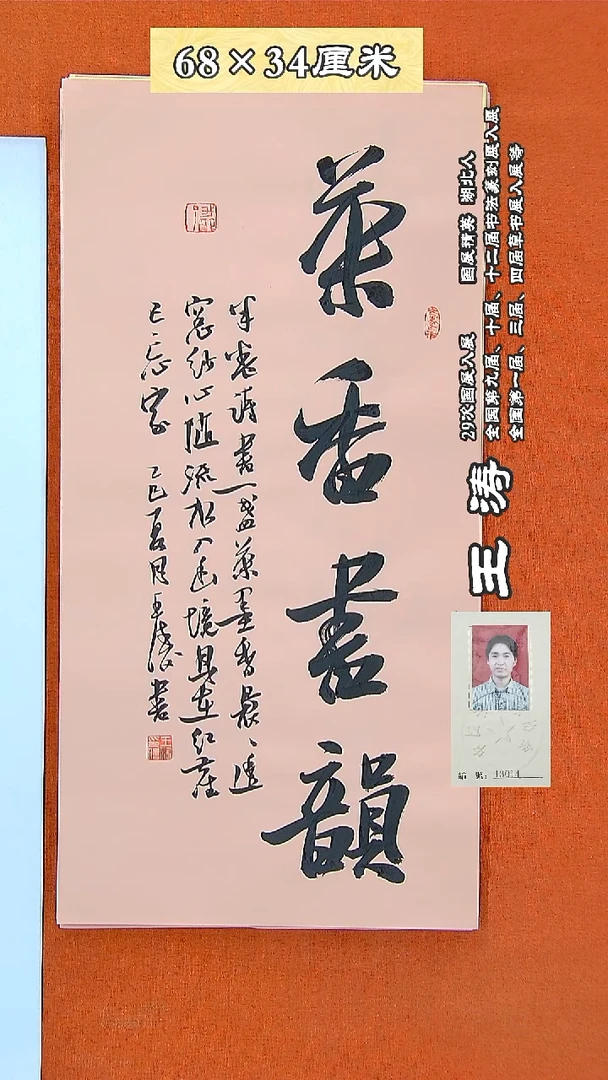 68×34厘米
29次国展入展 国展精英 湖北人
全国第九届、十届、十二届书法篆刻展入展
全国第一届、三届、四届草书展入展等
王涛
茶香书韵
半卷诗书一盏茶墨香袅袅透
窗纱心随流水入幽境且在红尘
已忘家 乙巳夏月王涛书
编 号：